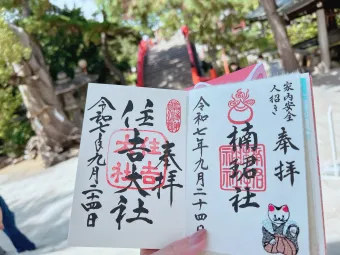 家内安全
人招き
奉拝
楠珺社
令和七年九月二十四日
奉拝
住吉大社
住吉
大社
令和七年九月二十四日